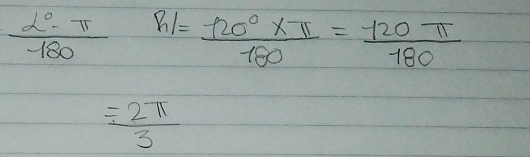 α°·π/180 R/= 120° × π/180 = 120 π/180
= 2π/3